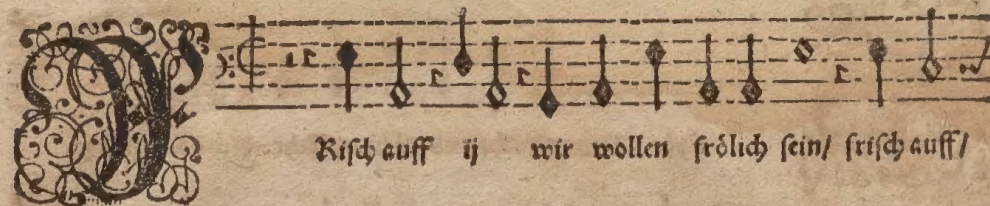 Risch auff ij wir wollen frölich sein/ frisch auff/